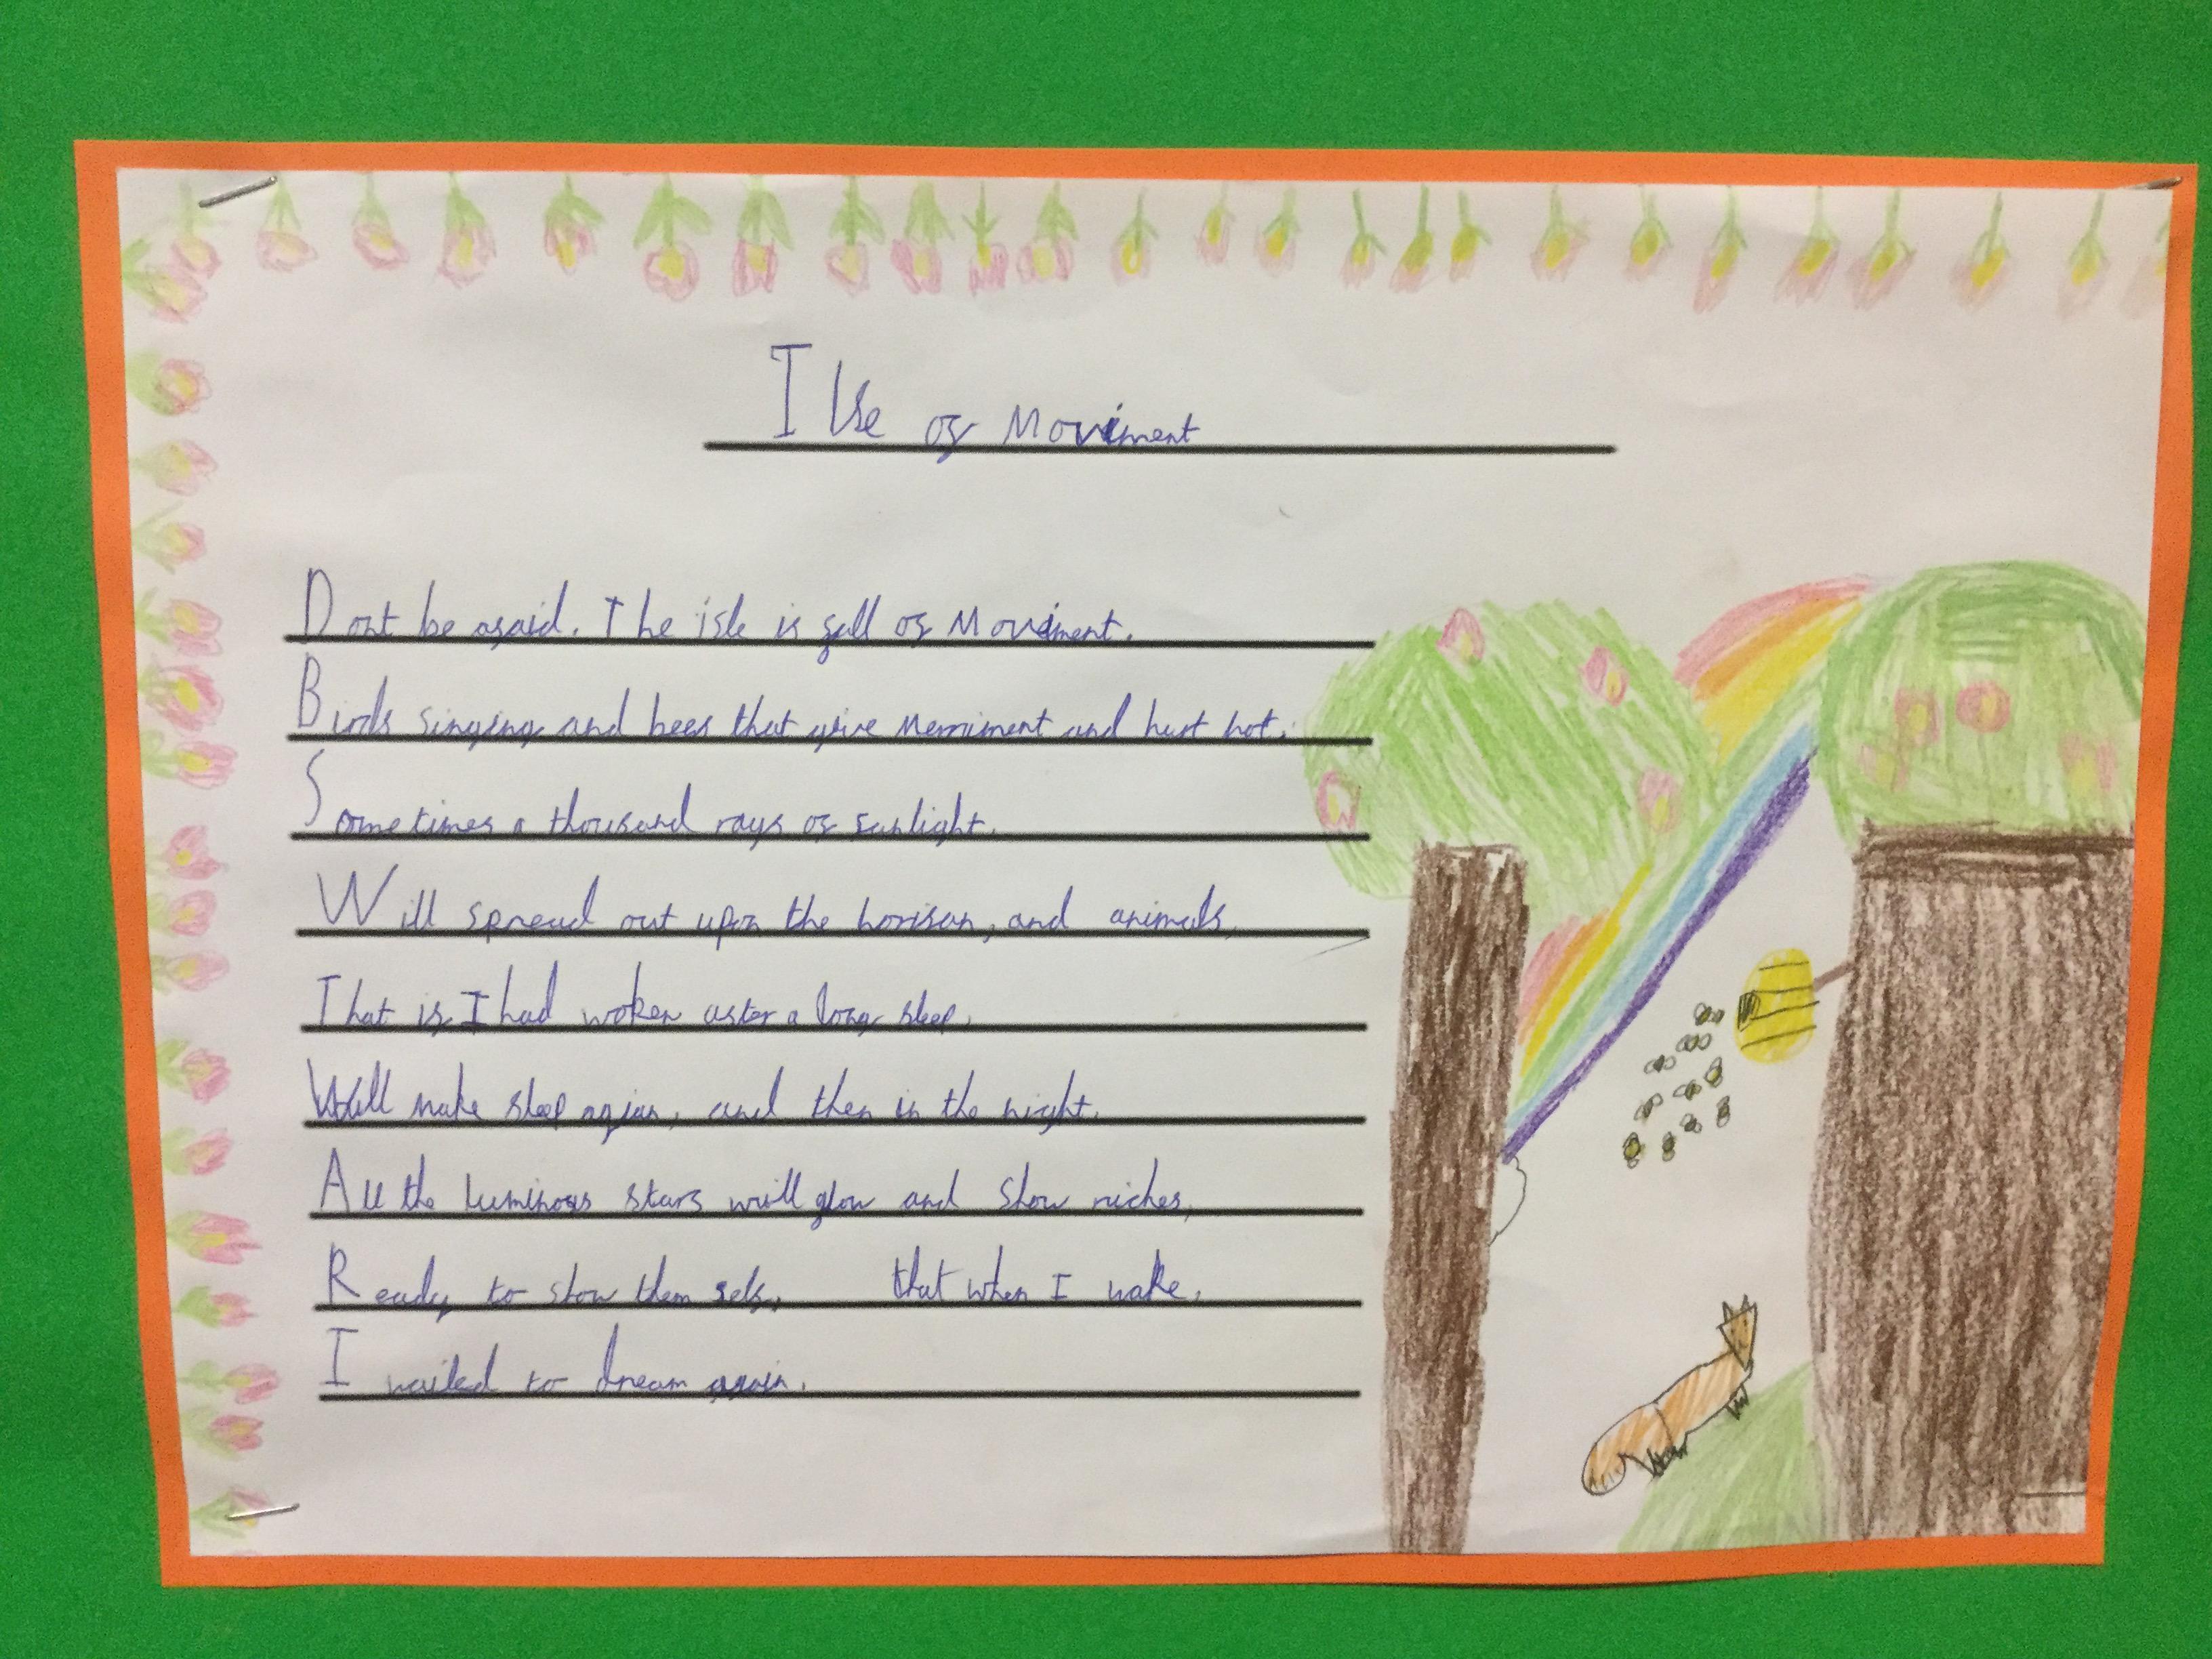 Isle of Moviment
Dont be afraid. The isle is full of Moviment.
Birds singing and bees that give Merriment and hurt not.
Sometimes a thousand rays of sunlight.
Will spread out upon the horison, and animals,
That if I had woken after a long sleep,
Will make sleep agian, and then in the night.
All the luminous stars will glow and show riches,
Ready to show them self, that when I wake,
I wailed to dream again.